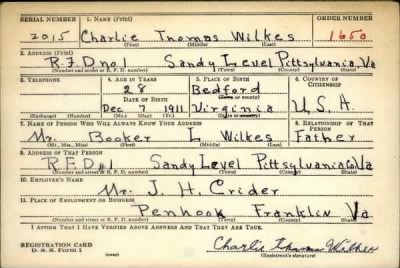 SERIAL NUMBER 1. NAME (Print) ORDER NUMBER
2015 Charlie Thomas Wilkes 1650
(First) (Middle) (Last)
2. ADDRESS (Print)
R.F.D no 1 Sandy Level Pittsylvania Va
(Number and street or R. F. D. number) (Town) (County) (State)
3. TELEPHONE 4. AGE IN YEARS 5. PLACE OF BIRTH 6. COUNTRY OF CITIZENSHIP
28 Bedford
DATE OF BIRTH (Town or county)
Dec 7 1911 Virginia U.S.A.
(Exchange) (Number) (Mo.) (Day) (Yr.) (State or country)
7. NAME OF PERSON WHO WILL ALWAYS KNOW YOUR ADDRESS 8. RELATIONSHIP OF THAT PERSON
Mr. Booker L Wilkes Father
(Mr., Mrs., Miss) (First) (Middle) (Last)
9. ADDRESS OF THAT PERSON
R.F.D #1 Sandy Level Pittsylvania Co Va
(Number and street or R. F. D. number) (Town) (County) (State)
10. EMPLOYER'S NAME
Mr. J. H. Crider
11. PLACE OF EMPLOYMENT OR BUSINESS
Penhook Franklin Va.
(Number and street or R. F. D. number) (Town) (County) (State)
I AFFIRM THAT I HAVE VERIFIED ABOVE ANSWERS AND THAT THEY ARE TRUE.
REGISTRATION CARD Charlie Thomas Wilkes
D. S. S. Form 1 (over) (Registrant's signature)